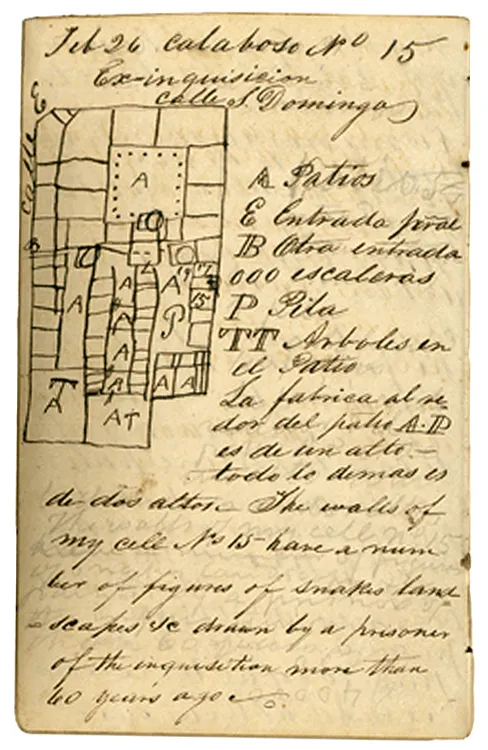 Feb 26 calaboso No 15
Ex-inquisicion
calle S. Domingo
calle
E
A
B
A Patios
E Entrada pral
B Otra entrada
000 escaleras
P Pila
TT Arboles en
el Patio
La fabrica al re-
dor del patio A.P
es de un alto.—
todo lo demas es
de dos altos. The walls of
my cell No 15 have a num
ber of figures of snakes land
-scapes &c drawn by a prisoner
of the inquisition more than
60 years ago
A
A
A
A
15
P
A
A
A
T
A
AT